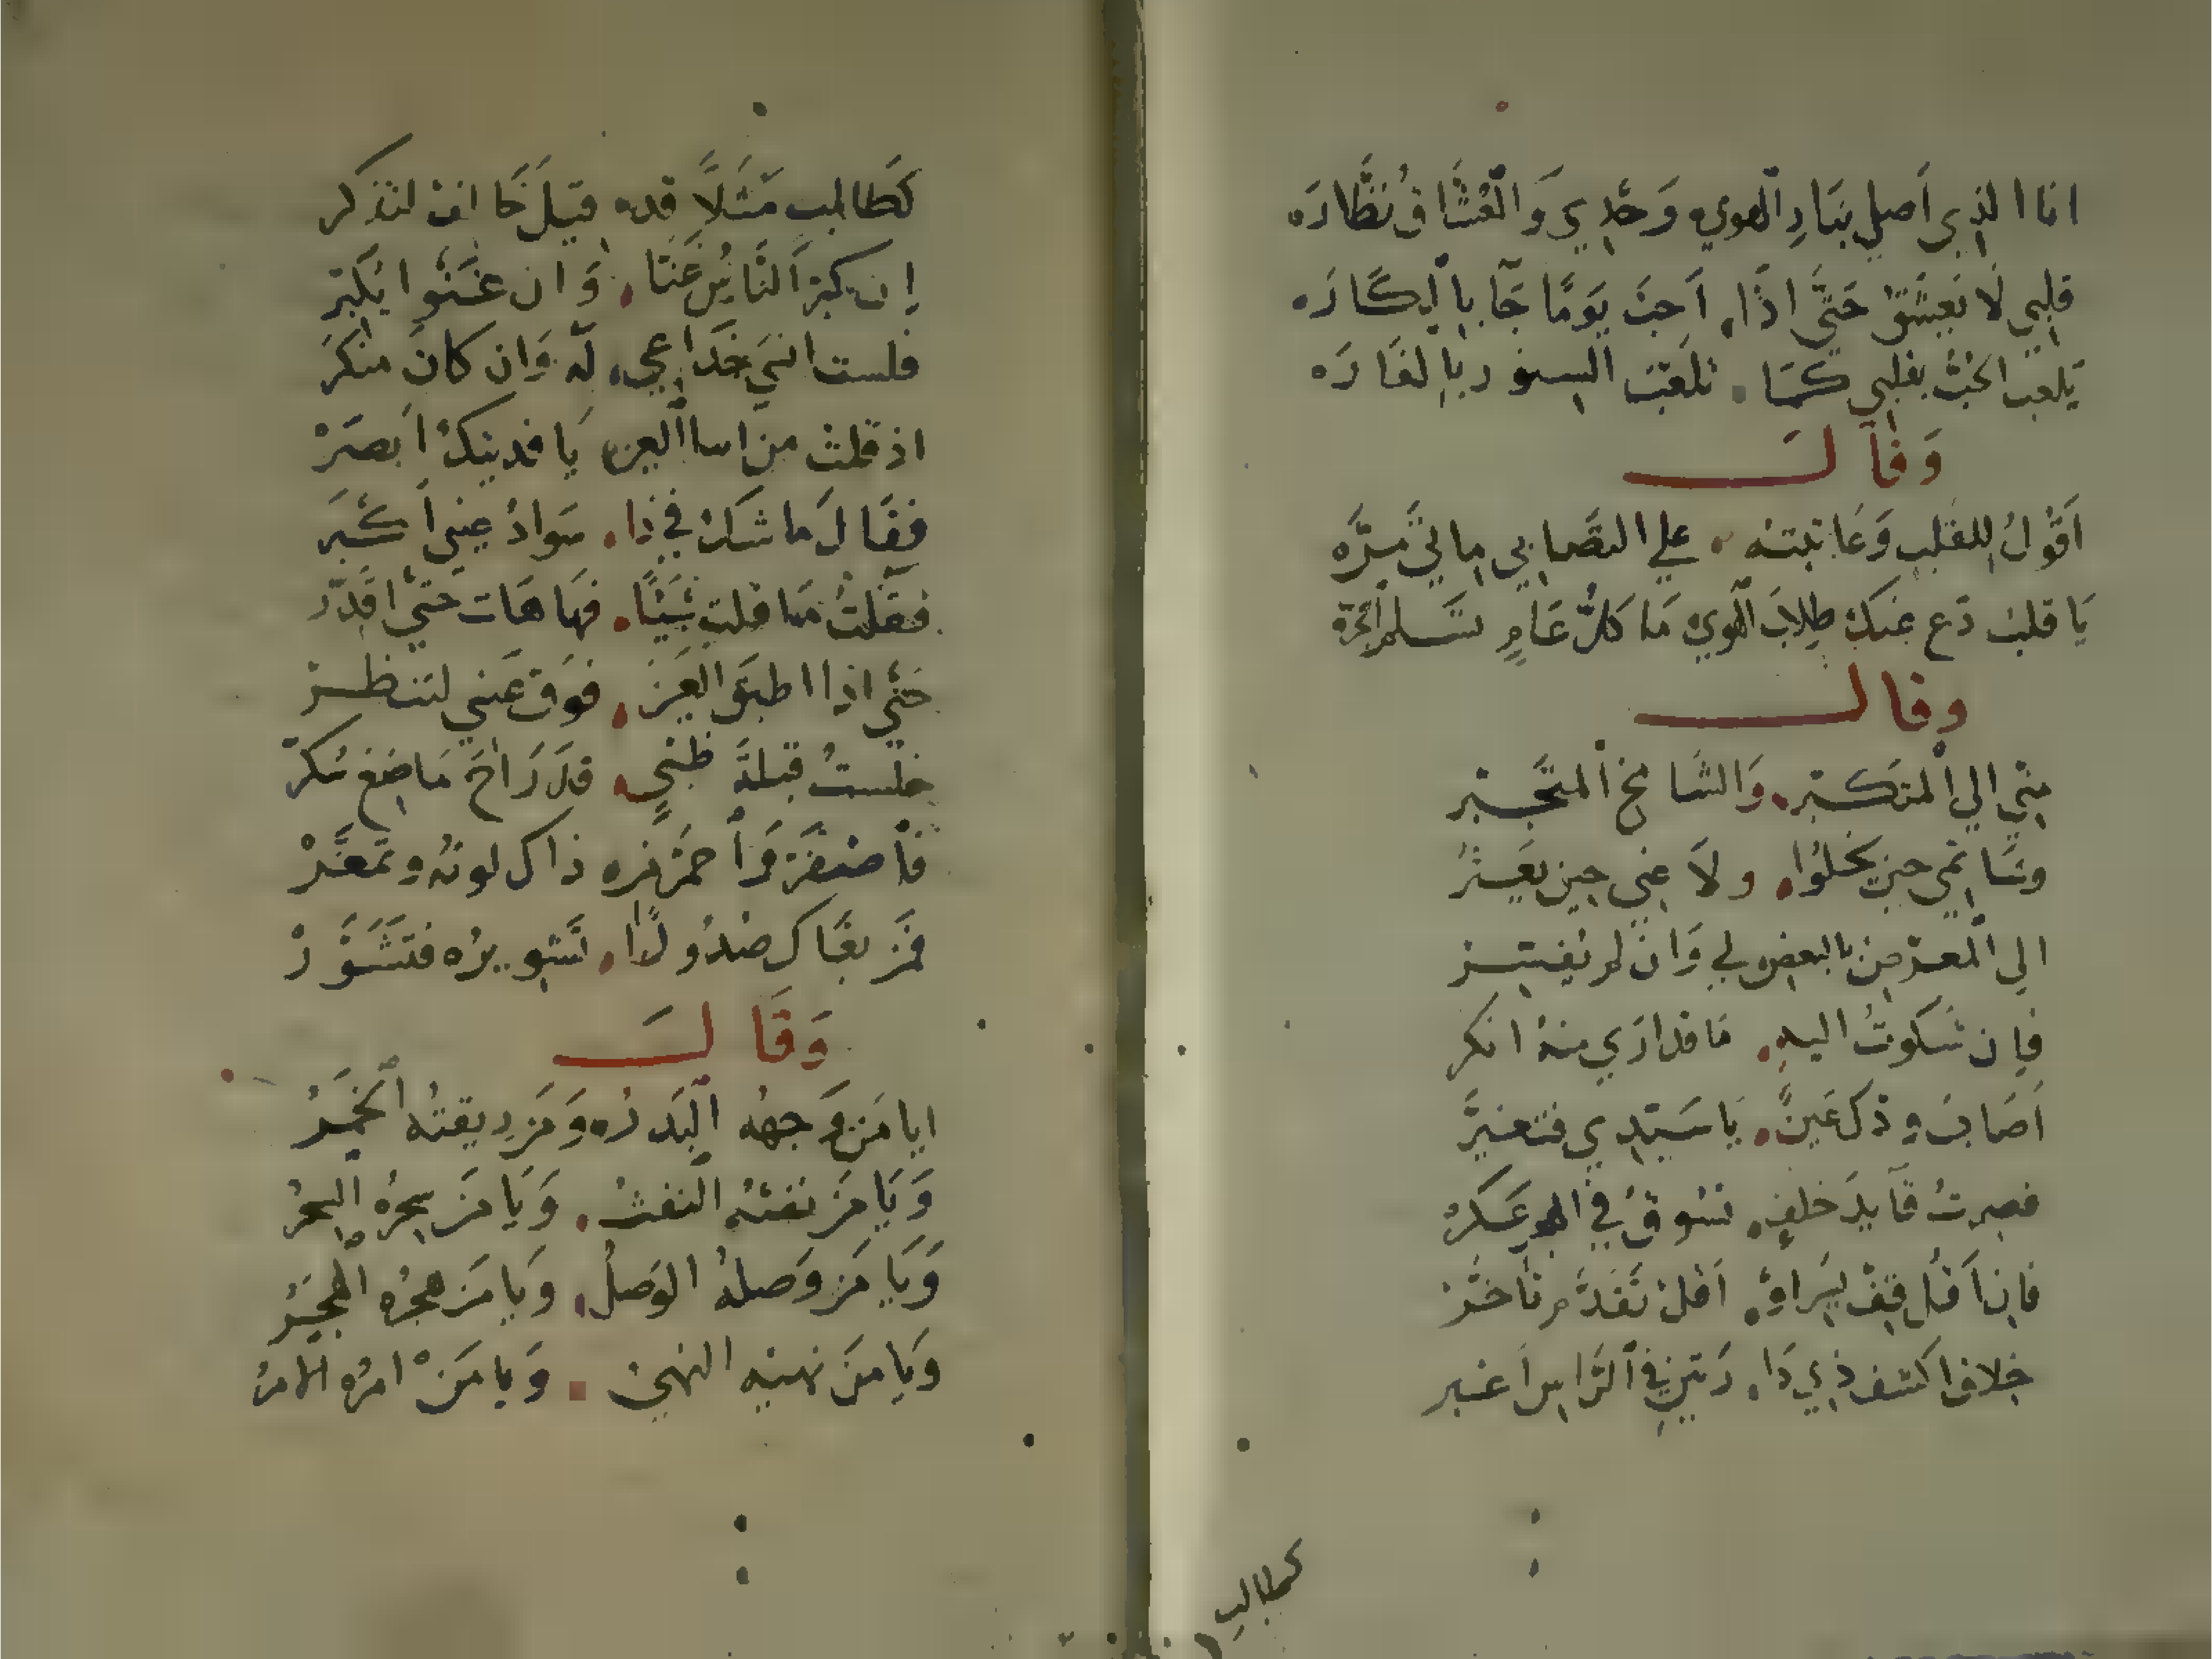 انا الذي اَصلي بنَارِ الهوي وَحْدِي وَالعُشَّاقُ نَظَّارَه
قلبي لَا يَعشَقُ حَتَّى اذَا اَحبَّ يَومًا جَا بالكَارَه
يَلعب الحُبُّ بقلبي كَمَا تلعَبُ السنور بالفَارَه
وَقال
اَقُولُ للقلبِ وَعَاتبته علي التصَابي مايَتي مَرَّه
يَا قلبُ دَع عنكَ طِلابَ الهوي مَا كلُّ عَامٍ تسَلم الجَرّه
وقال
مِنّي الي المتكبّر وَالشَامخ المتَجَبّر
وشَاتمي حين يخلوا ولَا عني حين يعبُرُ
الي المعرّض بالبعض لي وَان لم يُفسّر
فاِن شَكوتُ اليهِ مَا قد ارَي منهُ انكر
اَصَابَ وذكَ عَينٌ يَا سَيّدِي فتغيَّر
فصرتُ قَايدَ خلفٍ تسُوقُ في الهجر عَسكرْ
فان اَقُل قِفْ يَرَاوِهْ اَقُلْ تَقَدَّم تأخّر
خِلاف اكشف ذي دَا رَتين في الرَاس اَعبر
كَطالب مَثَلًا قد قيلَ خَا انت لتذكر
اِن كبرَ النَّاسُ عَنَّا وَان عَنَّوا يُكبّر
فلست انسَي خدَاعي له وَان كانَ منكرَ
اذ قلتُ من اسا العين يَا فديتكَ اَبصَرْ
فقَالَ ما شكَكْ في ذا سَوادُ عيني اَكبَر
فقلتُ مَا قلتَ شَيئًا فهَا هَات حَتّي اقَدّر
حَتّي اذا اطبقَ العَين فوَق عَيني لتنظر
خلستُ قبلةَ ظبيٍ قد رَاحَ مَاضغ سُكر
فاَصفَرّ وَاَحمَرّ من ذاك لونهُ وتَمعَّرْ
وَقَالَ
ايا مَن وَجههُ البَدرُ وَمَن رِيقتهُ الخَمرُ
وَيَا مَن نفثهُ النفثُ وَيَا مَن سِحرُه السِحرُ
وَيَا مَن وَصلهُ الوَصلُ وَيَا مَن هجرُه الهجرُ
وَيَا مَن نهيُه النهيُ وَيا مَنْ امرُه الامرُ
كطالب